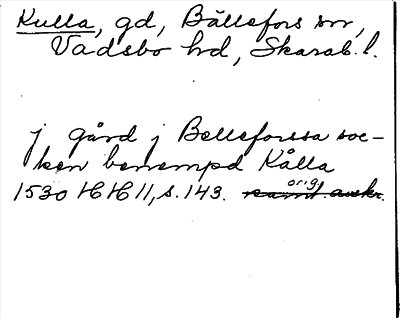 Kulla, gd, Bällefors sn,
Vadsbo hd, Skarab. l.
j gård j Belleforssa soc-
ken benempd Kålla
1530 HH 11, s. 143. orig.